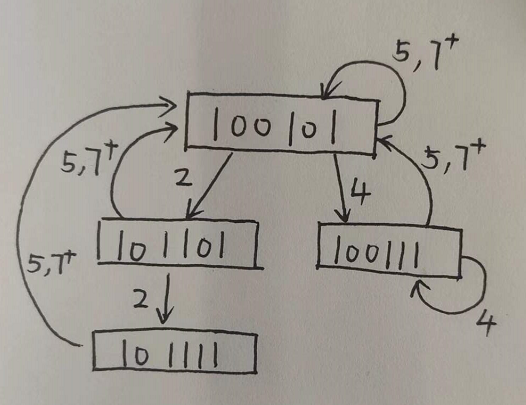 5,7+
100101
5,7+
2
4
5,7+
101101
100111
5,7+
2
4
101111